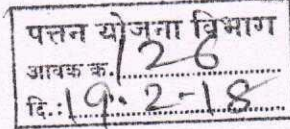 पत्तन योजना विभाग
आवक क्र. 126
दि.: 19.2-18